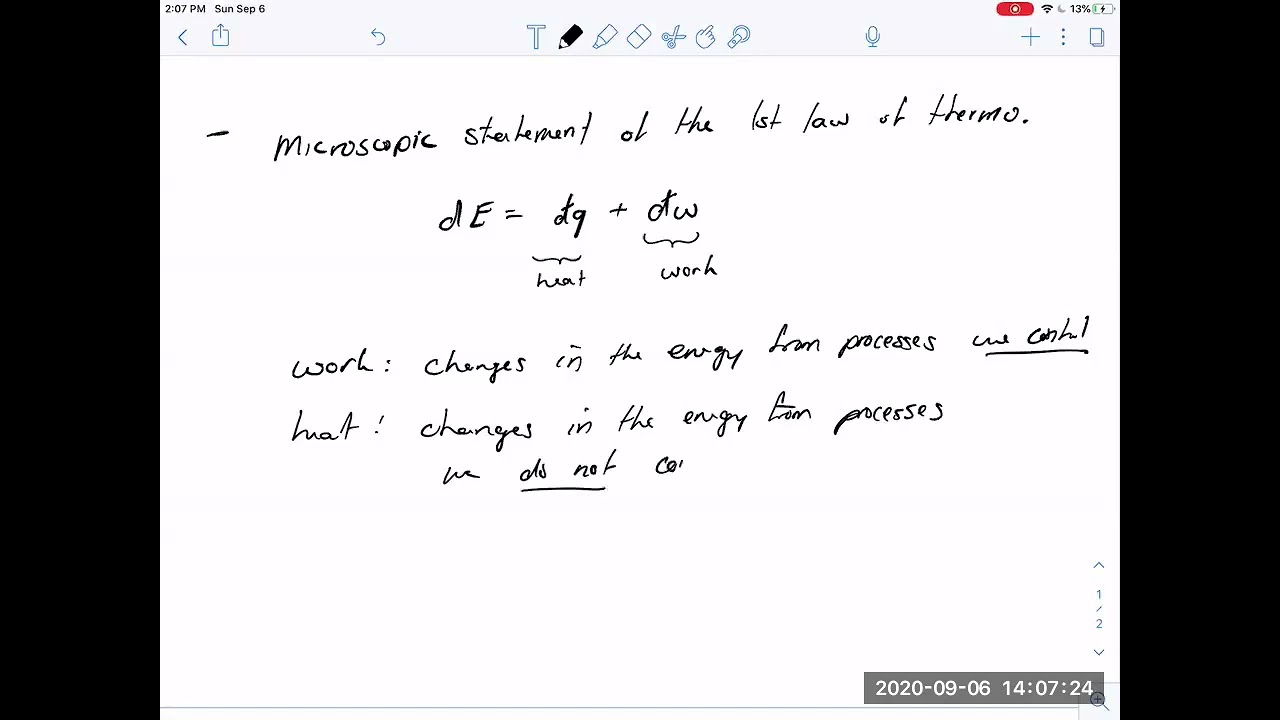 2:07 PM Sun Sep 6
13%
T
- Microscopic statement of the 1st law of thermo.
dE = đq + đw
heat work
work: changes in the energy from processes we control
heat: changes in the energy from processes
we do not co
1
/
2
2020-09-06 14:07:24